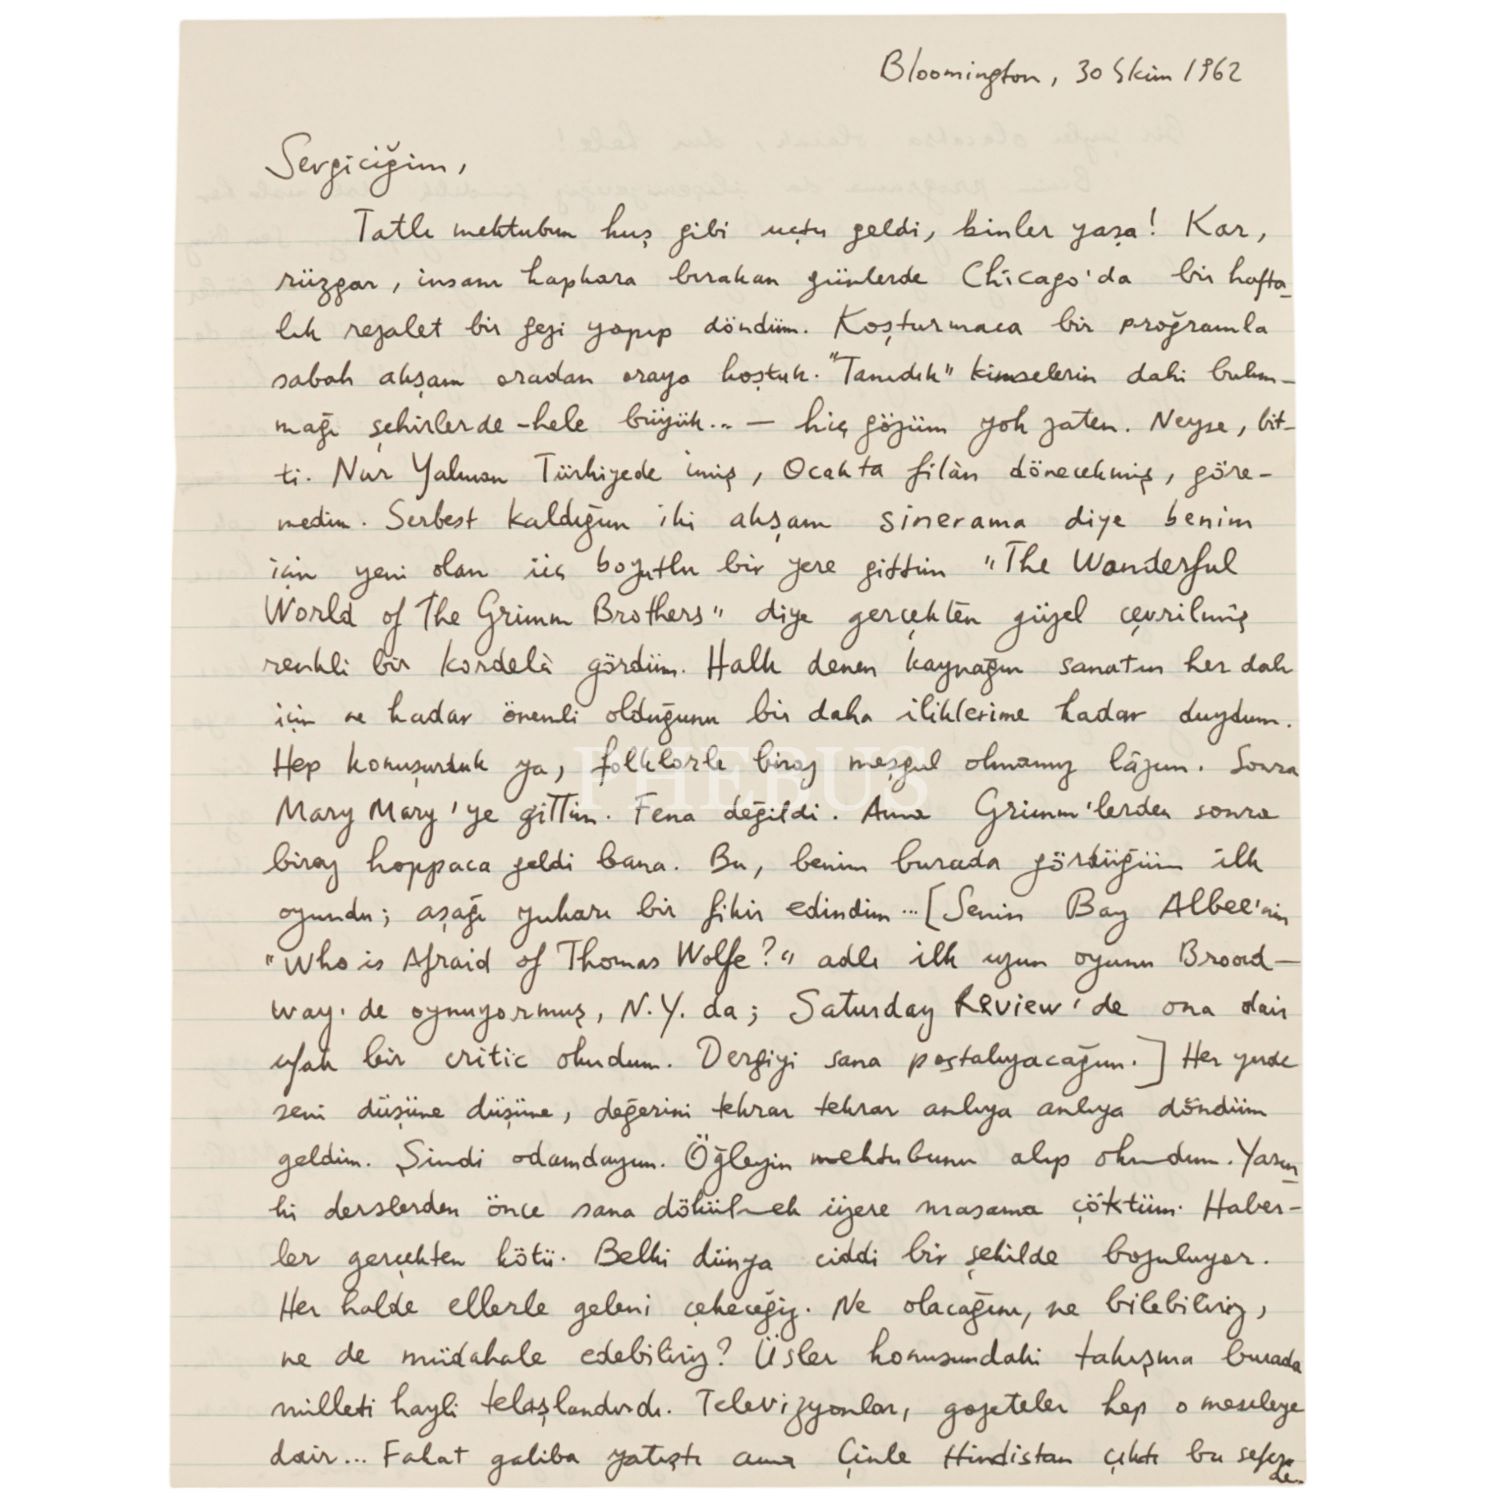 Bloomington, 30 Ekim 1962
Sevgiciğim,
Tatlı mektubun kuş gibi uçtu geldi, binler yaşa! Kar,
rüzgar, insanı kapkara bırakan günlerde Chicago'da bir hafta_
lık rezalet bir gezi yapıp döndüm. Koşturmaca bir proğramla
sabah akşam oradan oraya koştuk. "Tanıdık" kimselerin dahi bulun-
mağı şehirlerde - hele büyük.. — hiç gözüm yok zaten. Neyse, bit-
ti. Nur Yalman Türkiyede imiş, Ocakta filân dönecekmiş, göre-
medim. Serbest kaldığım iki akşam sinerama diye benim
için yeni olan üç boyutlu bir yere gittim "The Wonderful
World of The Grimm Brothers" diye gerçekten güzel çevrilmiş
renkli bir kordelâ gördüm. Halk denen kaynağın sanatın her dalı
için ne kadar önemli olduğunu bir daha iliklerime kadar duydum.
Hep konuşurduk ya, folklorla biraz meşgul olmamız lâzım. Sonra
Mary Mary'ye gittim. Fena değildi. Ama Grimm'lerden sonra
biraz hoppaca geldi bana. Bu, benim burada gördüğüm ilk
oyundu; aşağı yukarı bir fikir edindim... [Senin Bay Albee'nin
"Who is Afraid of Thomas Wolfe?" adlı ilk uzun oyunu Broad—
way'de oynuyormuş, N.Y. da; Saturday Review'de ona dair
ufak bir critic okudum. Dergiyi sana postalıyacağım.] Her yerde
seni düşüne düşüne, değerini tekrar tekrar anlıya anlıya döndüm
geldim. Şimdi odamdayım. Öğleyin mektubunu alıp okudum. Yarın_
ki derslerden önce sana dökülmek üzere masama çöktüm. Haber-
ler gerçekten kötü. Belki dünya ciddi bir şekilde bozuluyor.
Her halde ellerle geleni çekeceğiz. Ne olacağını, ne bilebiliriz,
ne de müdahale edebiliriz? Üsler konusundaki takışma burada
milleti hayli telaşlandırdı. Televizyonlar, gazeteler hep o meseleye
dair... Fakat galiba yatıştı ama Çinle Hindistan çıktı bu sefer
de.
PHEBUS